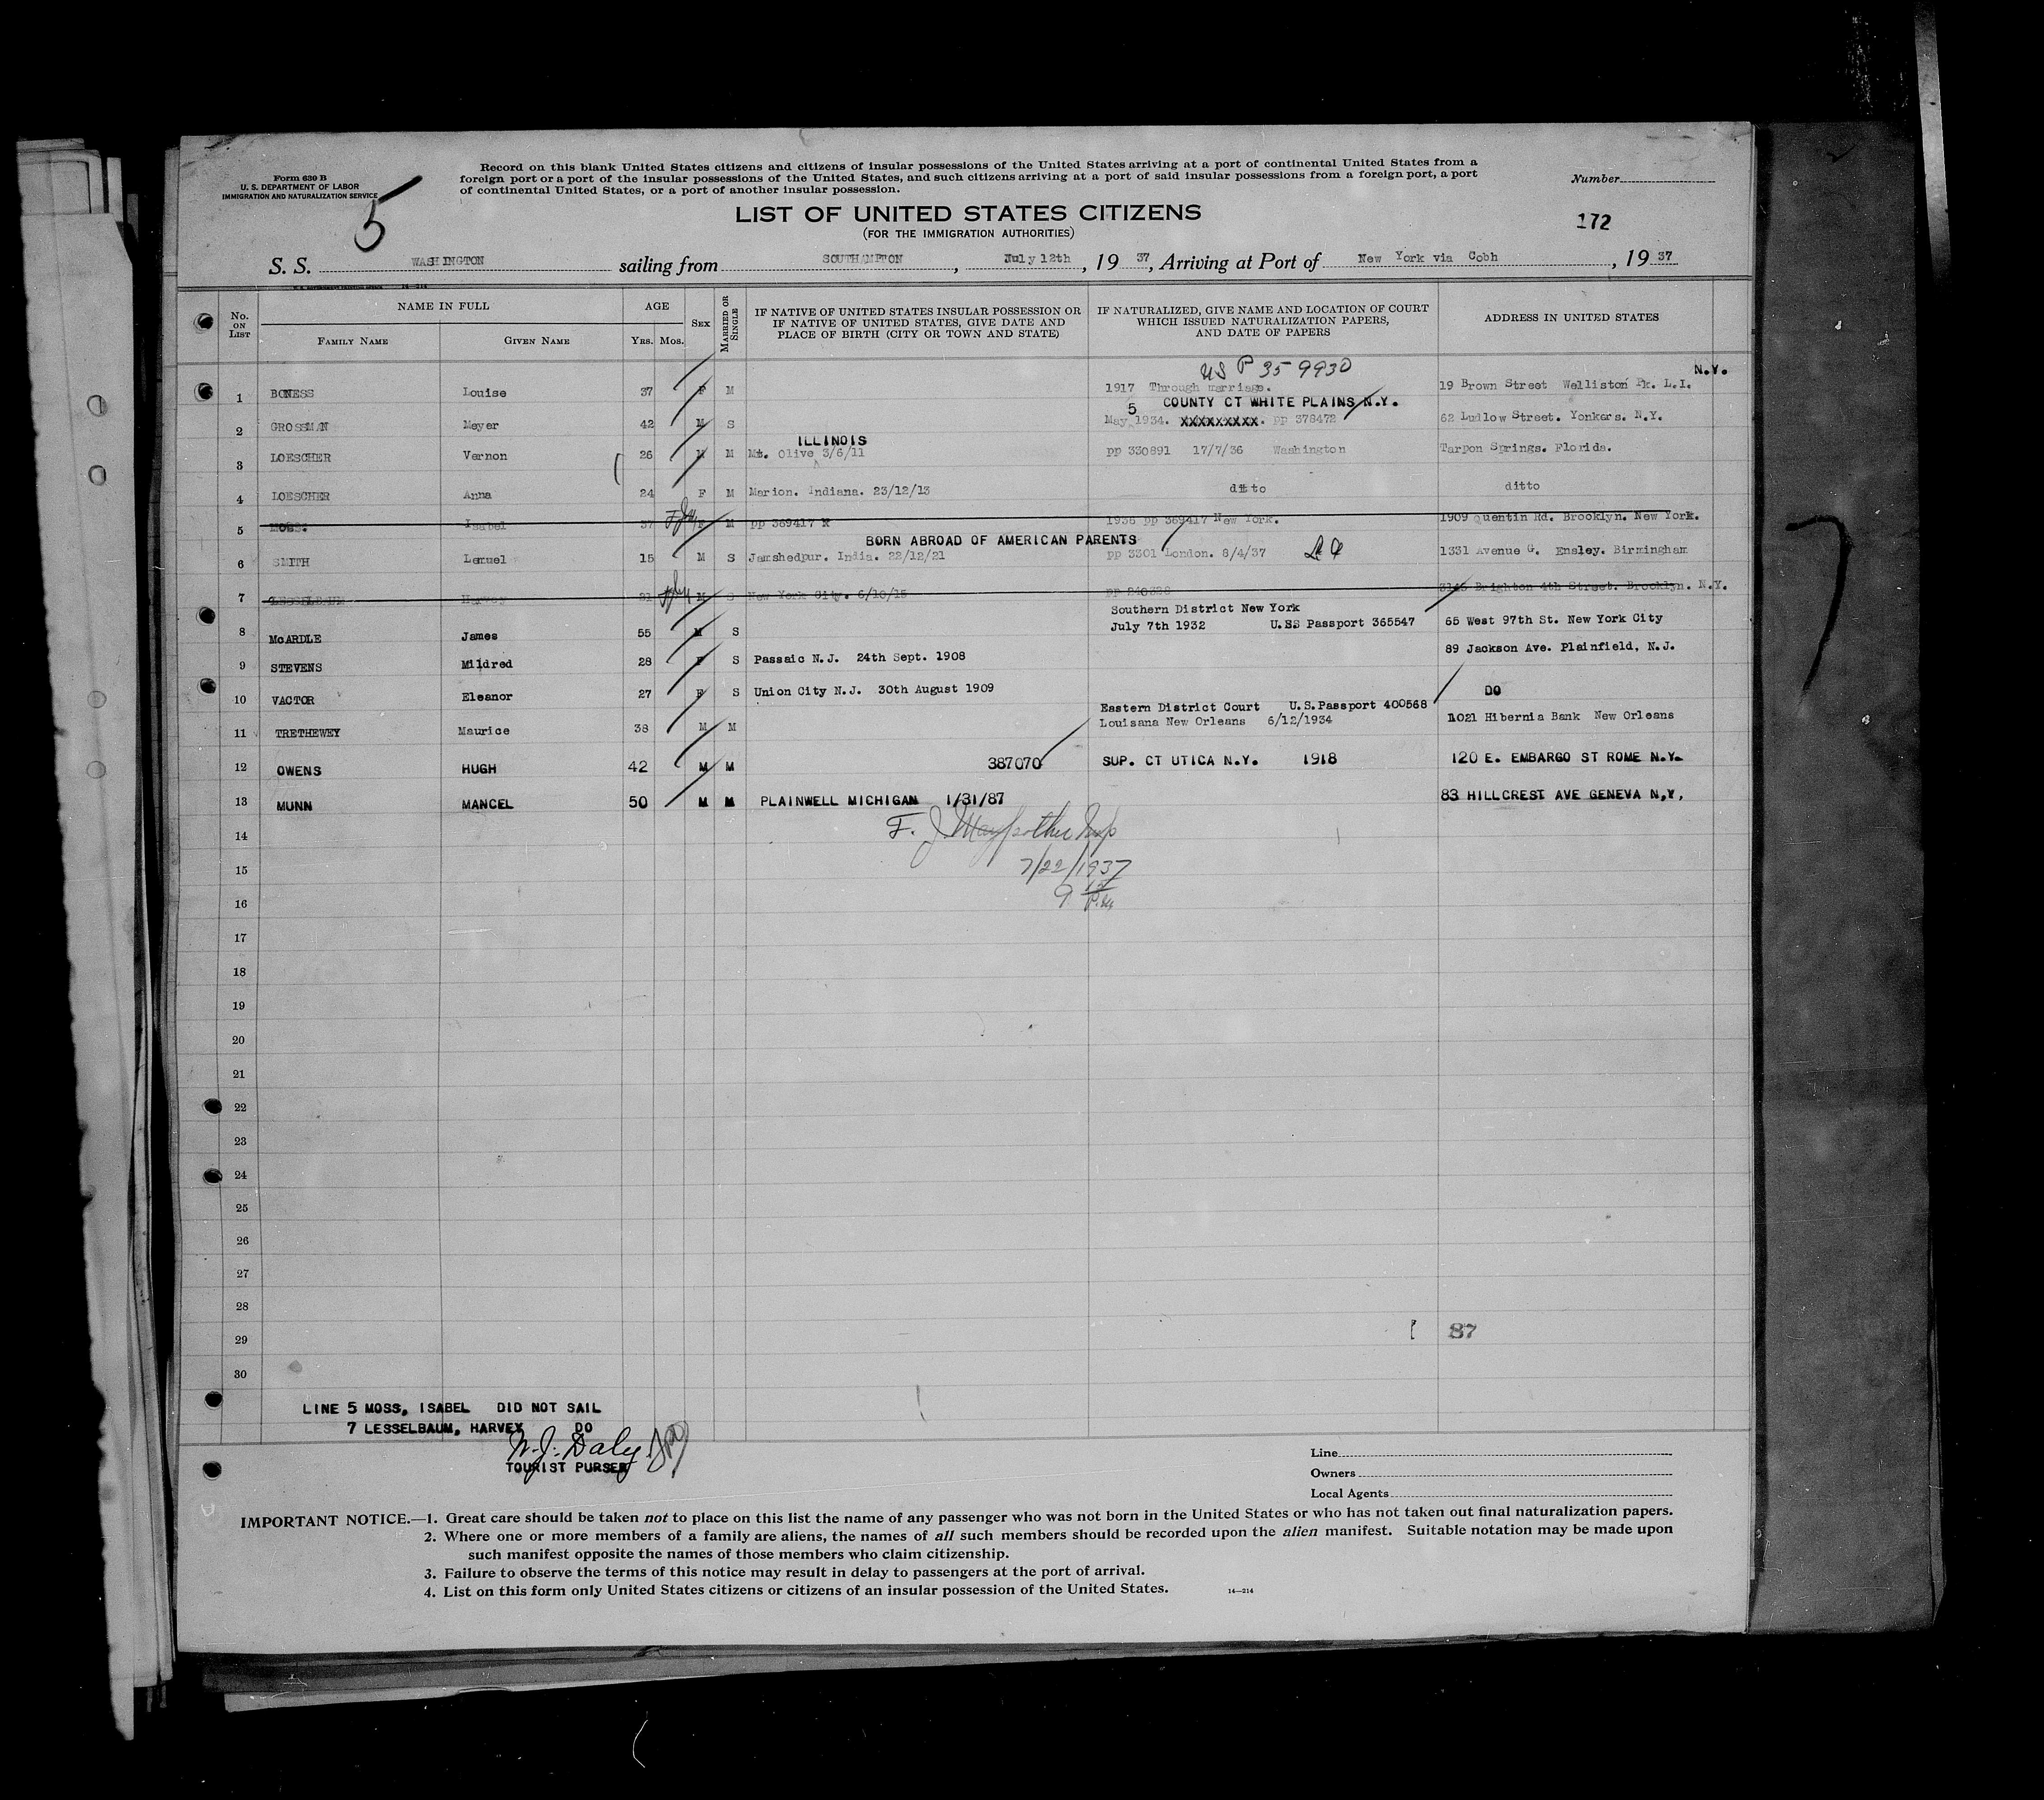 Form 630 B
U. S. DEPARTMENT OF LABOR
IMMIGRATION AND NATURALIZATION SERVICE
5
Record on this blank United States citizens and citizens of insular possessions of the United States arriving at a port of continental United States from a
foreign port or a port of the insular possessions of the United States, and such citizens arriving at a port of said insular possessions from a foreign port, a port
of continental United States, or a port of another insular possession.
Number
LIST OF UNITED STATES CITIZENS
(FOR THE IMMIGRATION AUTHORITIES)
172
S. S. WASHINGTON sailing from SOUTHAMPTON, July 12th, 1937, Arriving at Port of New York via Cobh, 1937
No. ON LIST
NAME IN FULL
FAMILY NAME
GIVEN NAME
AGE
YRS. MOS.
SEX
MARRIED OR SINGLE
IF NATIVE OF UNITED STATES INSULAR POSSESSION OR
IF NATIVE OF UNITED STATES, GIVE DATE AND
PLACE OF BIRTH (CITY OR TOWN AND STATE)
IF NATURALIZED, GIVE NAME AND LOCATION OF COURT
WHICH ISSUED NATURALIZATION PAPERS,
AND DATE OF PAPERS
ADDRESS IN UNITED STATES
US P 359930
N.Y.
1 BONESS Louise 37 F M 1917 Through marriage. 19 Brown Street Welliston Pk. L.I.
5 COUNTY CT WHITE PLAINS N.Y.
2 GROSSMAN Meyer 42 M S May 1934. XXXXXXXXX. pp 378472 62 Ludlow Street. Yonkers. N.Y.
ILLINOIS
3 LOESCHER Vernon 26 M M Mt. Olive 3/6/11 pp 330891 17/7/36 Washington Tarpon Springs. Florida.
4 LOESCHER Anna 24 F M Marion. Indiana. 23/12/13 ditto ditto
5 MOSS. Isabel 37 F M pp 369417 X 1936 pp 369417 New York. 1909 Quentin Rd. Brooklyn. New York.
BORN ABROAD OF AMERICAN PARENTS
6 SMITH Lemuel 15 M S Jamshedpur. India. 22/12/21 pp 3301 London. 8/4/37 1331 Avenue G. Ensley. Birmingham
7 LESSELBAUM Harvey 21 M S New York City. 6/10/15 pp 240328 3145 Brighton 4th Street. Brooklyn. N.Y.
Southern District New York
8 McARDLE James 55 M S July 7th 1932 U.SS Passport 365547 65 West 97th St. New York City
9 STEVENS Mildred 28 F S Passaic N.J. 24th Sept. 1908 89 Jackson Ave. Plainfield, N.J.
10 VACTOR Eleanor 27 F S Union City N.J. 30th August 1909 DO
Eastern District Court U.S.Passport 400568
11 TRETHEWEY Maurice 38 M M Louisana New Orleans 6/12/1934 1021 Hibernia Bank New Orleans
12 OWENS HUGH 42 M M 387070 SUP. CT UTICA N.Y. 1918 120 E. EMBARGO ST ROME N.Y.
13 MUNN MANCEL 50 M M PLAINWELL MICHIGAN 1/31/87 83 HILLCREST AVE GENEVA N,Y,
14
F. J.
15
7/22/1937
16
9 P.M.
17
18
19
20
21
22
23
24
25
26
27
28
29 87
30
LINE 5 MOSS, ISABEL DID NOT SAIL
7 LESSELBAUM, HARVEY DO
W. J. Daly
TOURIST PURSER
Line
Owners
Local Agents
IMPORTANT NOTICE.—1. Great care should be taken not to place on this list the name of any passenger who was not born in the United States or who has not taken out final naturalization papers.
2. Where one or more members of a family are aliens, the names of all such members should be recorded upon the alien manifest. Suitable notation may be made upon
such manifest opposite the names of those members who claim citizenship.
3. Failure to observe the terms of this notice may result in delay to passengers at the port of arrival.
4. List on this form only United States citizens or citizens of an insular possession of the United States.
14—214